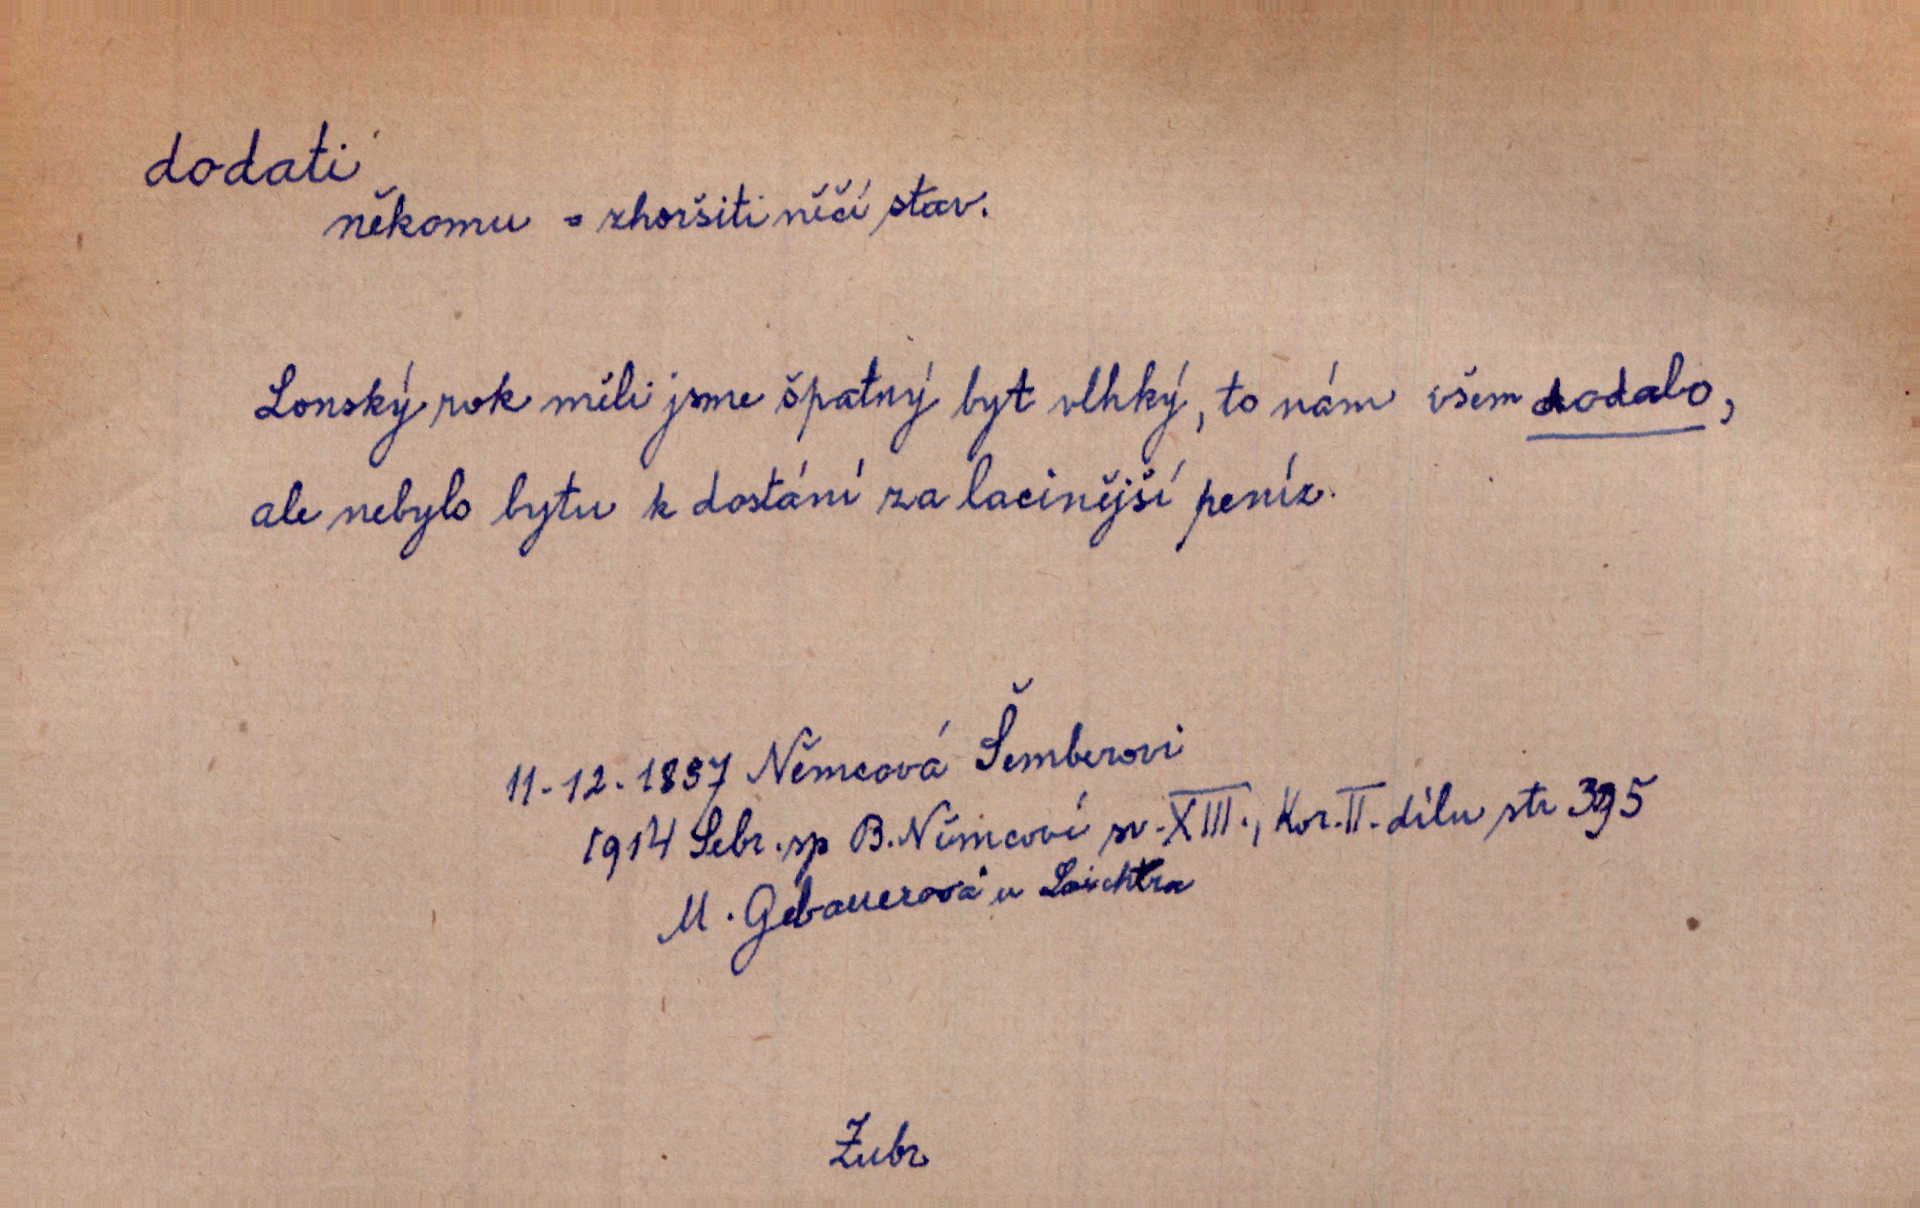 dodati
někomu = zhoršiti něčí stav.
Lonský rok měli jsme špatný byt vlhký, to nám všem dodalo,
ale nebylo bytu k dostání za lacinější peníz.
11-12-1857 Němcová Šemberovi
1914 Sebr. sp B. Němcové sv. XIII., Kor. II. dílu str 395
M. Gebauerová u Laichtra
Zubr